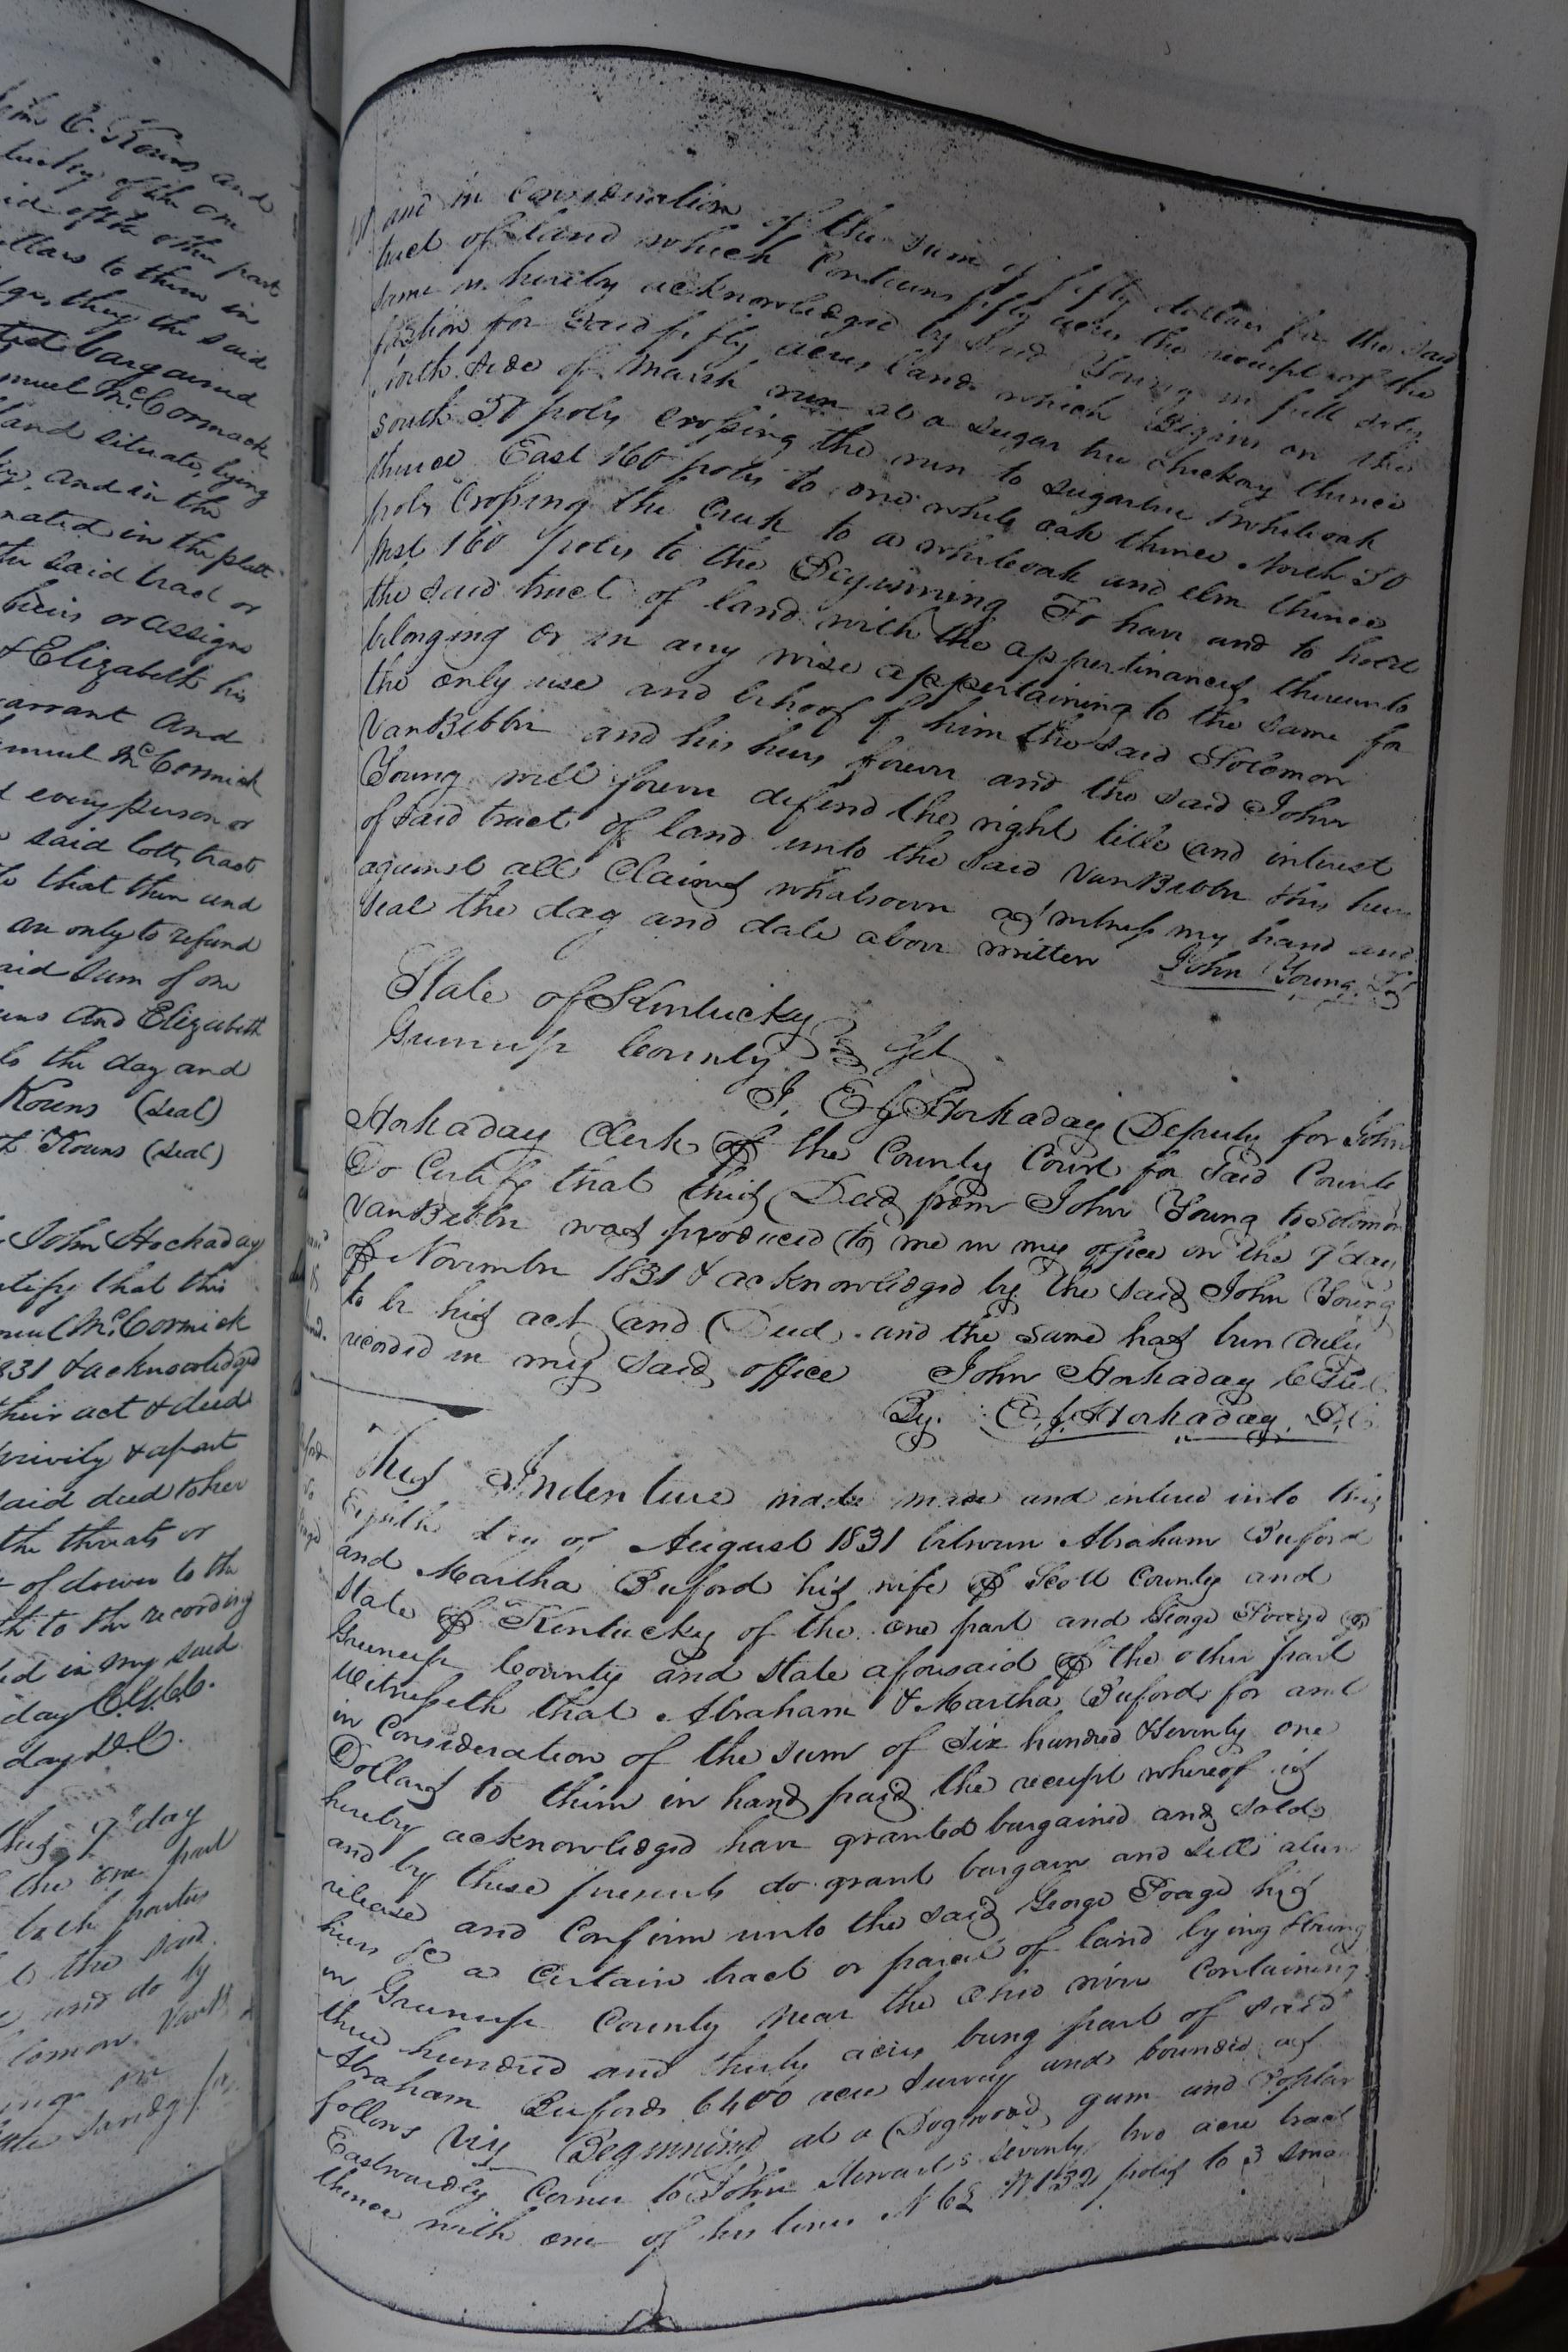 John E. Kouns and
of the one
of the other part
dollars to them in
they the said
bargained
Samuel McCormack
land situate, lying
and in the
in the platt
the said tract or
heirs or assigns
& Elizabeth his
warrant and
Samuel McCormick
every person or
said lott, tracts
that then and
are only to refund
said sum of one
Kouns and Elizabeth
the day and
Kouns (Seal)
Kouns (Seal)
John Hockaday
certify that this
McCormick
1831 & acknowledged
their act & deed
privily & apart
said deed to her
the threats or
of dower to the
to the recording
in my said
this 7th day
the one part
both parties
the said
and do by
Solomon
and in Consideration of the sum of fifty dollars for the said
tract of land which Contains fifty acres the receipt of the
same is hereby acknowledged by said Young in full satis
faction for said fifty acres land which Begins on the
north side of Marsh run at a sugar tree hickory thence
south 50 poles crossing the run to sugartree whiteoak
thence East 160 poles to one white oak thence North 50
poles Crossing the Creek to a whiteoak and elm thence
West 160 poles to the Beginning To have and to hold
the said tract of land with the appertinances thereunto
belonging or in any wise appertaining to the same for
the only use and behoof of him the said Solomon
VanBibber and his heirs forever and the said John
Young will forever defend the right title and interest
of said tract of land unto the said VanBibber & his heirs
against all Claims whatsoever as witness my hand and
seal the day and date above written John Young
State of Kentucky
Greenup County Sct
I, E J Hockaday Deputy for John
Hockaday Clerk of the County Court for said County
Do Certify that this Deed from John Young to Solomon
VanBibber was produced to me in my office on the 7th day
of November 1831 & acknowledged by the said John Young
to be his act and Deed. and the same has been duly
recorded in my said office John Hockaday
By. E. J. Hockaday. D.C
This Indenture made made and entered into this
Eighth day of August 1831 between Abraham Buford
and Martha Buford his wife of Scott County and
State of Kentucky of the one part and George Poage of
Greenup County and State aforesaid of the other part
Witnesseth that Abraham & Martha Buford for and
in Consideration of the sum of Six hundred & Seventy one
Dollars to them in hand paid the receipt whereof is
hereby acknowledged have granted bargained and sold
and by these presents do grant bargain and sell alien
release and Confirm unto the said George Poage his
heirs &c a certain tract or parcel of land lying & being
in Greenup County near the Ohio river Containing
three hundred and thirty acres being part of said
Abraham Bufords 6400 acre Survey and bounded as
follows viz Beginning at a Dogwood, gum and Poplar
Eastwardly Corner to John Stewarts seventy two acre tract
thence with one of his lines N 62 W 132 poles to 3 small